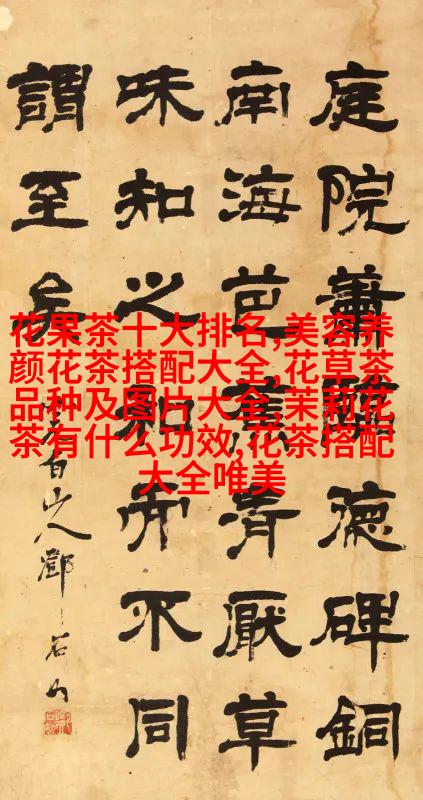 庭院蕭德碑銅
南海芭蕉厭草
味知之知不同
謂至矣
白山人鄧石如
花果茶十大排名,美容养
颜花茶搭配大全,花草茶
品种及图片大全,茉莉花
茶有什么功效,花茶搭配
大全唯美